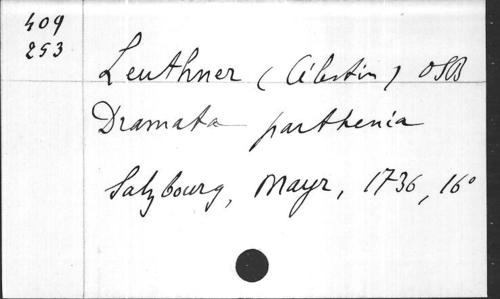 409
253
Leuthner (Célestin) OSB
Dramata parthenia
Salzbourg, Mayr, 1736, 16°